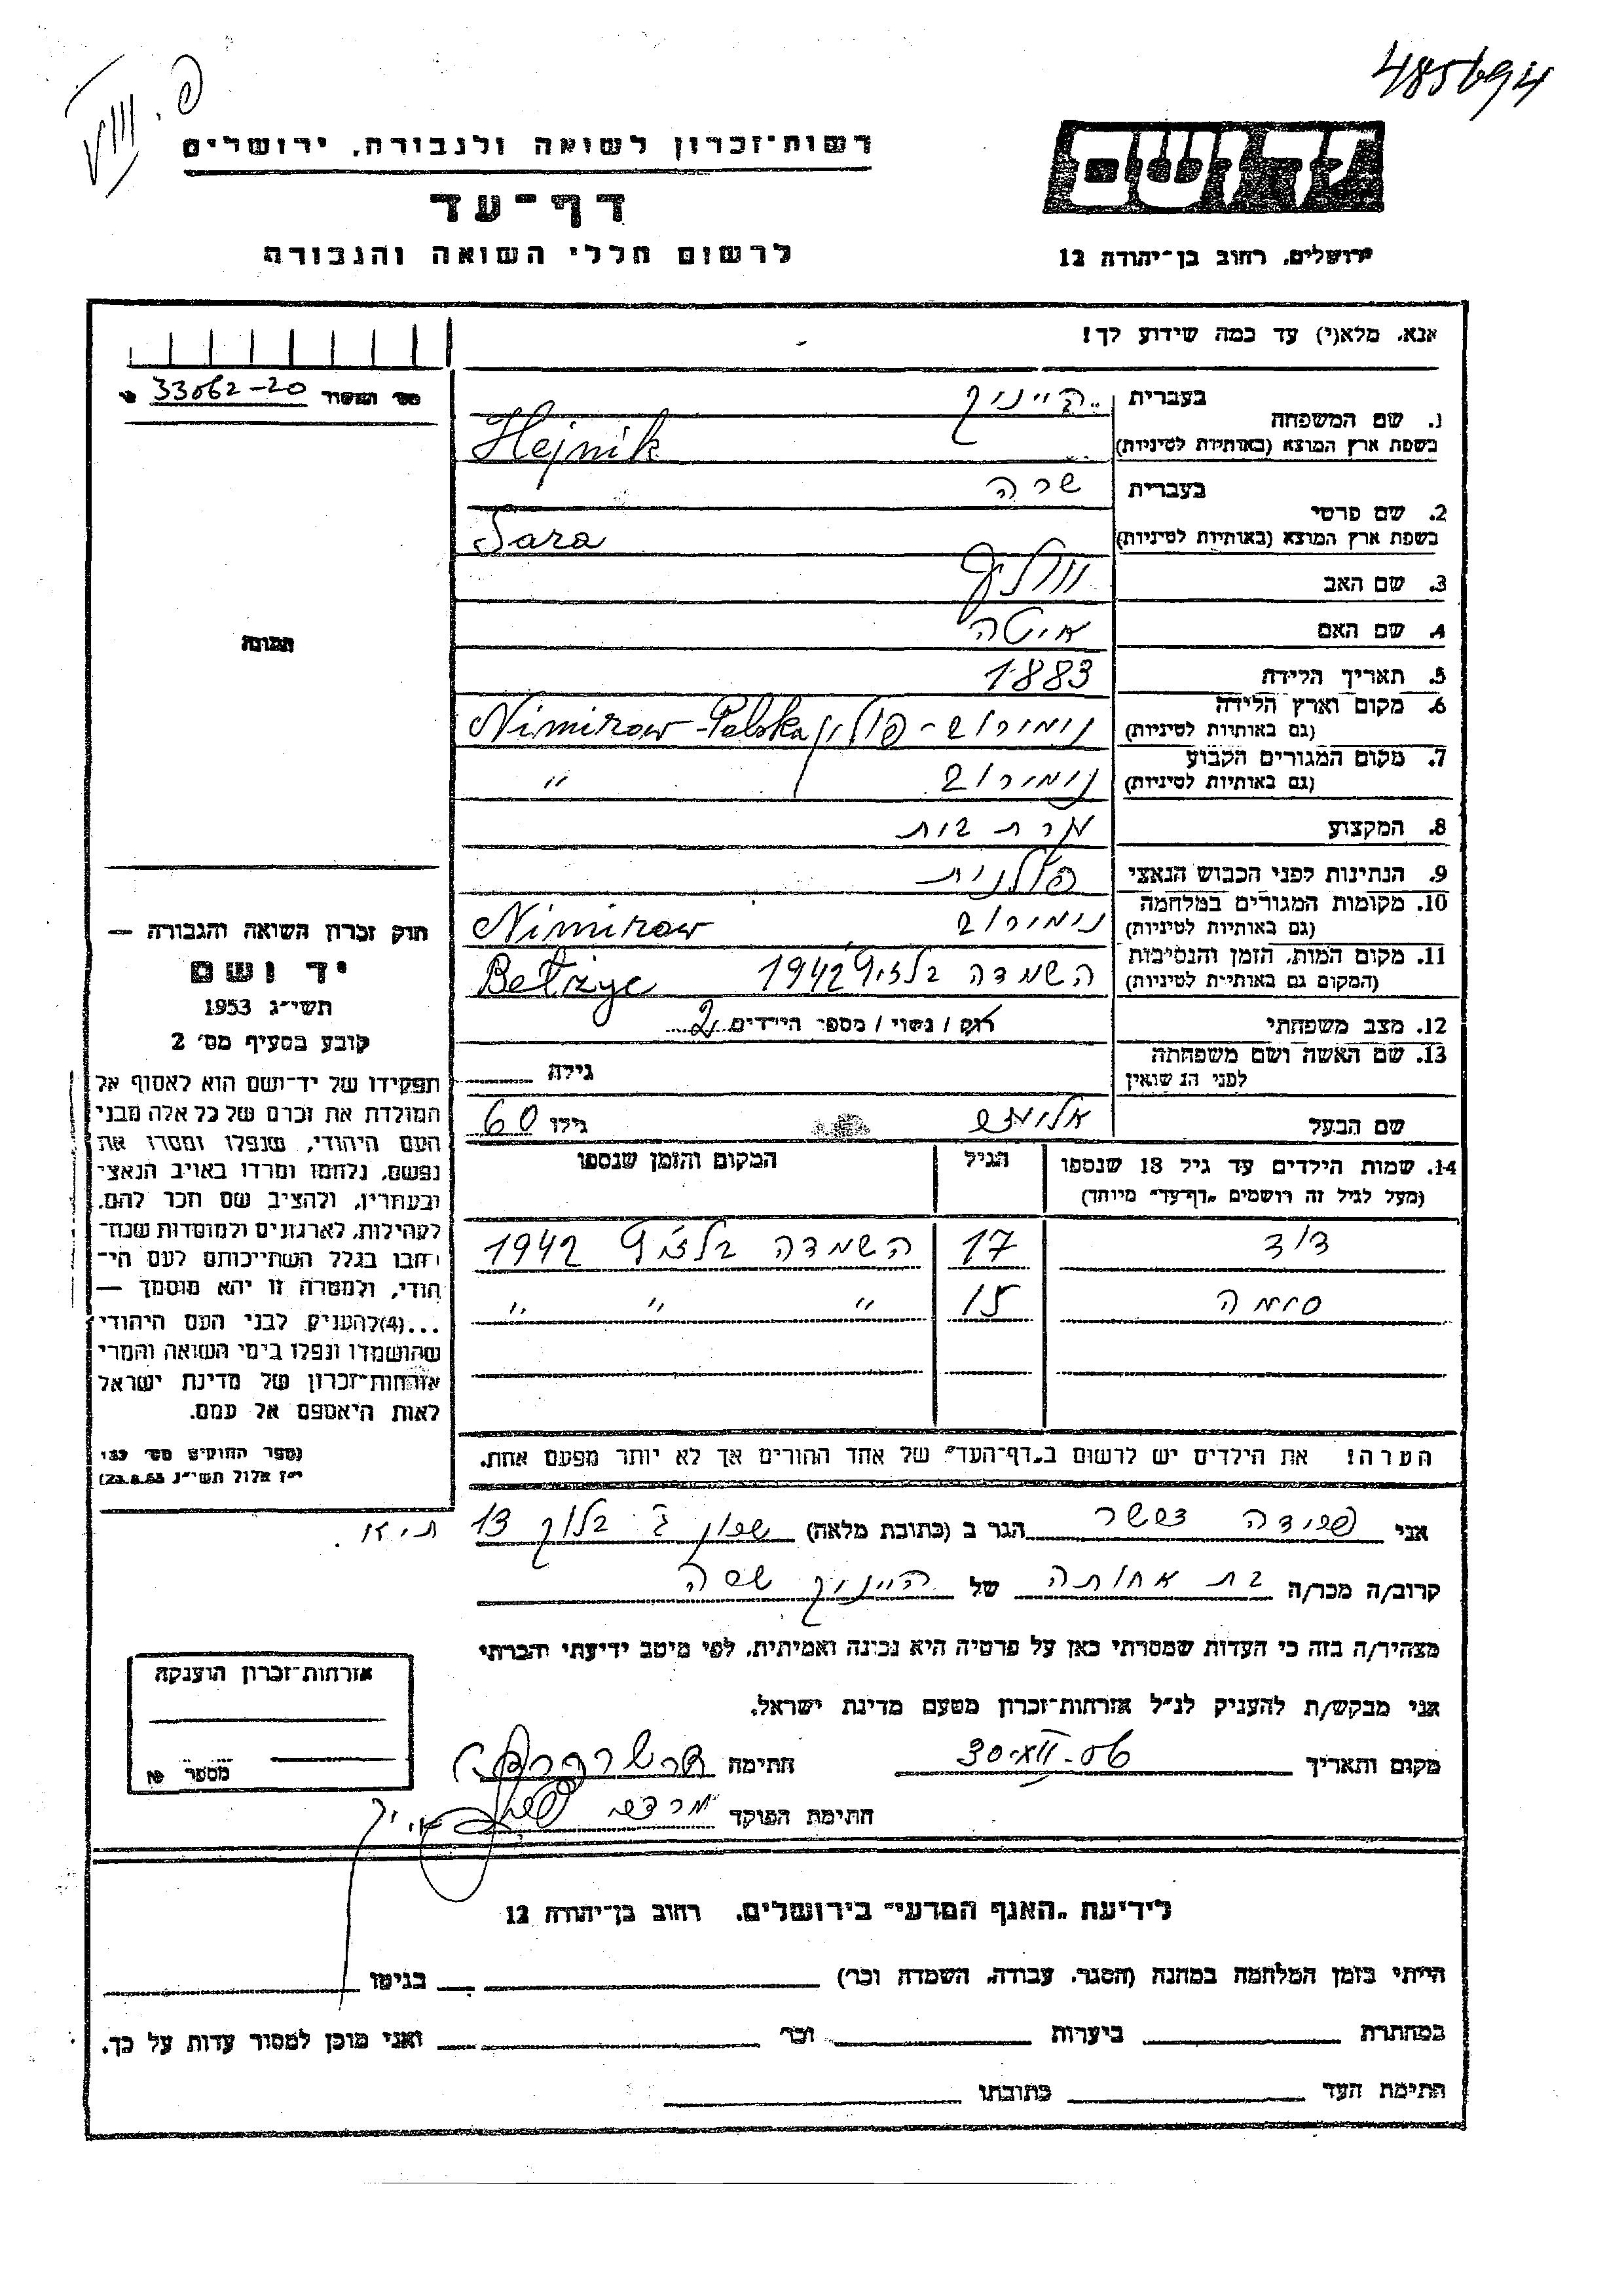 485694
פ. VIII
רשות־זכרון לשואה ולגבורה, ירושלים
דף־עד
לרשום חללי השואה והגבורה
יד ושם
ירושלים, רחוב בן־יהודה 12
אנא, מלא(י) עד כמה שידוע לך!
מס׳ תיק 33062-20
1. שם המשפחה בעברית היינוק
בשפת ארץ המוצא (באותיות לטיניות) Hejnik
2. שם פרטי בעברית שרה
בשפת ארץ המוצא (באותיות לטיניות) Sara
3. שם האב וולף
4. שם האם איטה
5. תאריך הלידה 1883
6. מקום וארץ הלידה (גם באותיות לטיניות) נימירוב - פולין Nimirow-Polska
7. מקום המגורים הקבוע (גם באותיות לטיניות) נימירוב "
8. המקצוע עקרת בית
9. הנתינות לפני הכבוש הנאצי פולנית
10. מקומות המגורים במלחמה (גם באותיות לטיניות) נימירוב Nimirow
11. מקום המות, הזמן והנסיבות (המקום גם באותיות לטיניות) השמדה בלזיץ 1942 Bełżyc
12. מצב משפחתי רוק / נשוי / מספר הילדים 2
13. שם האשה ושם משפחתה לפני הנישואין גילה
שם הבעל גילו 60
14. שמות הילדים עד גיל 18 שנספו (מעל לגיל זה רושמים „דף־עד" מיוחד) הגיל המקום והזמן שנספו
דוד 17 השמדה בלז׳ץ 1942
סימה 15 " " "
הערה! את הילדים יש לרשום ב„דף־העד" של אחד ההורים אך לא יותר מפעם אחת.
התמונה
חוק זכרון השואה והגבורה —
יד ושם
תשי״ג 1953
קובע בסעיף מס׳ 2
תפקידו של יד־ושם הוא לאסוף אל
המולדת את זכרם של כל אלה מבני
העם היהודי, שנפלו ומסרו את
נפשם, נלחמו ומרדו באויב הנאצי
ובעוזריו, ולהציב שם וזכר להם,
לקהילות, לארגונים ולמוסדות שנח־
רבו בגלל השתייכותם לעם הי־
הודי, ולמטרה זו יהא מוסמך —
...(4) להעניק לבני העם היהודי
שהושמדו ונפלו בימי השואה והמרי
אזרחות־זכרון של מדינת ישראל
לאות היאספם אל עמם.
(ספר החוקים מס׳ 132
י״ז אלול תשי״ג 28.8.53)
אני פרידה הגר ב (כתובת מלאה) שכון ג׳ בלוק 13
קרוב/ה מכר/ה בת אחותה של היינוק שרה
מצהיר/ה בזה כי העדות שמסרתי כאן על פרטיה היא נכונה ואמיתית, לפי מיטב ידיעתי והכרתי
אני מבקש/ת להעניק לנ״ל אזרחות־זכרון מטעם מדינת ישראל.
מקום ותאריך חתימה
חתימת הפוקד
אזרחות־זכרון הוענקה
מספר
לידיעת „האגף המדעי" בירושלים, רחוב בן־יהודה 12
הייתי בזמן המלחמה במחנה (הסגר, עבודה, השמדה וכו׳) בגיטו
במחתרת ביערות וכו׳ ואני מוכן למסור עדות על כך.
חתימת העד כתובתו